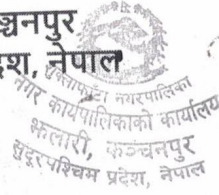 ञ्चनपुर
देश, नेपाल
शुक्लाफाँटा नगरपालिका
नगर कार्यपालिकाको कार्यालय
झलारी, कञ्चनपुर
सुदूरपश्चिम प्रदेश, नेपाल